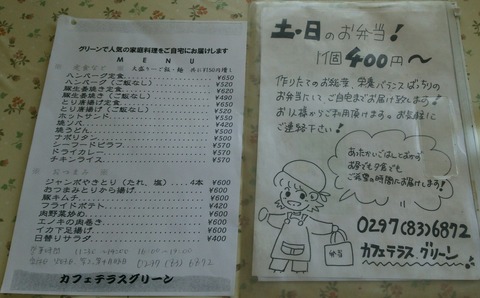 グリーンで人気の家庭料理をご自宅にお届けします
MENU
ハンバーグ定食 ¥650
ハンバーグ(ご飯なし) ¥520
豚生姜焼き定食 ¥620
豚生姜焼き(ご飯なし) ¥490
とり唐揚げ定食 ¥650
とり唐揚げ(ご飯なし) ¥520
ホットサンド ¥550
焼ソバ ¥420
焼うどん ¥500
ナポリタン ¥500
シーフードピラフ ¥570
ドライカレー ¥570
チキンライス ¥570
おつまみ
ジャンボやきとり(たれ、塩)....4本 ¥600
おつまみとりから揚げ ¥600
豚キムチ ¥600
フライドポテト ¥400
肉野菜炒め ¥600
エノキの肉巻き ¥600
イカ下足揚げ ¥600
日替りサラダ ¥400
営業時間
0297(83)6872
カフェテラスグリーン
土・日のお弁当!
1個400円~
作りたてのお総菜、栄養バランスばっちりの
お弁当にして ご自宅までお届け致します!
お1人様からご利用頂けます。お気軽に
ご連絡下さい!
あったかいごはんとおかず
お昼でも夕食でも
ご希望の時間にお届けします!
弁当
0297(83)6872
カフェテラス グリーン